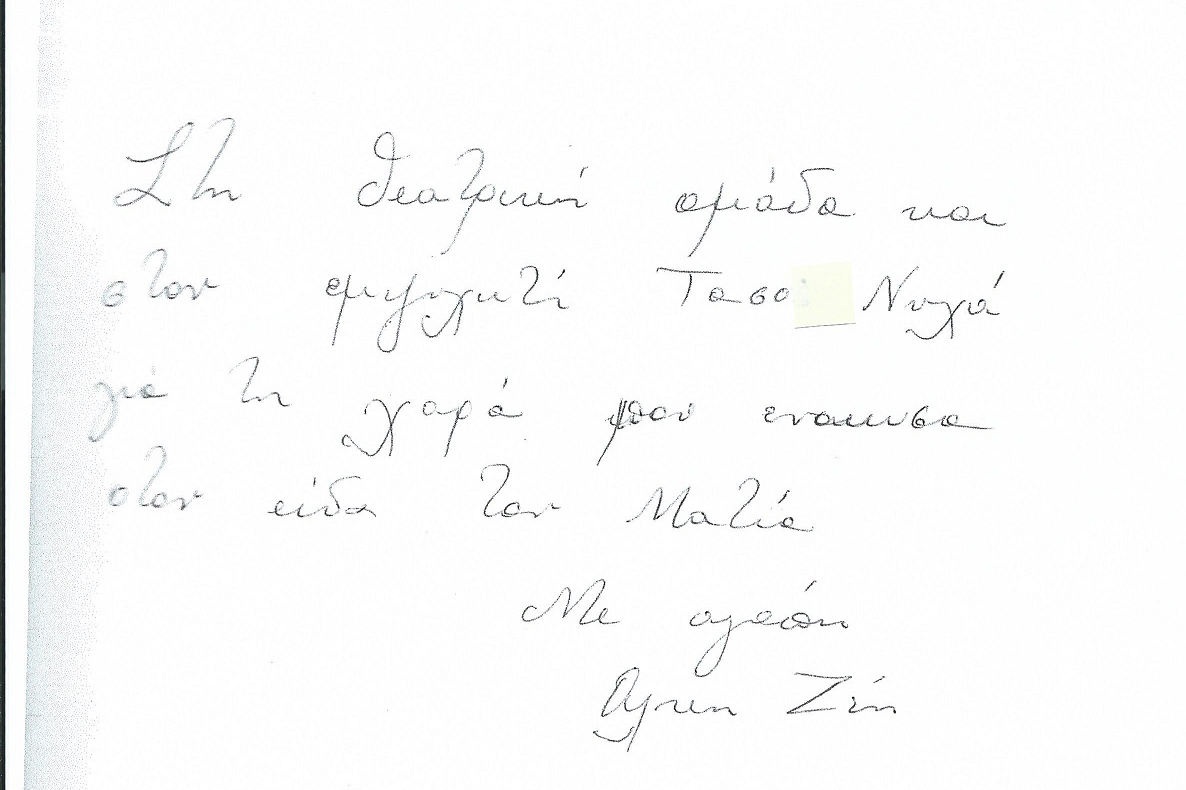 Στη θεατρική ομάδα και
στον εμψυχωτή Τάσο Νυχά
για τη χαρά που ένοιωσα
όταν είδα τον Ματία
Με αγάπη
Άλκη Ζέη